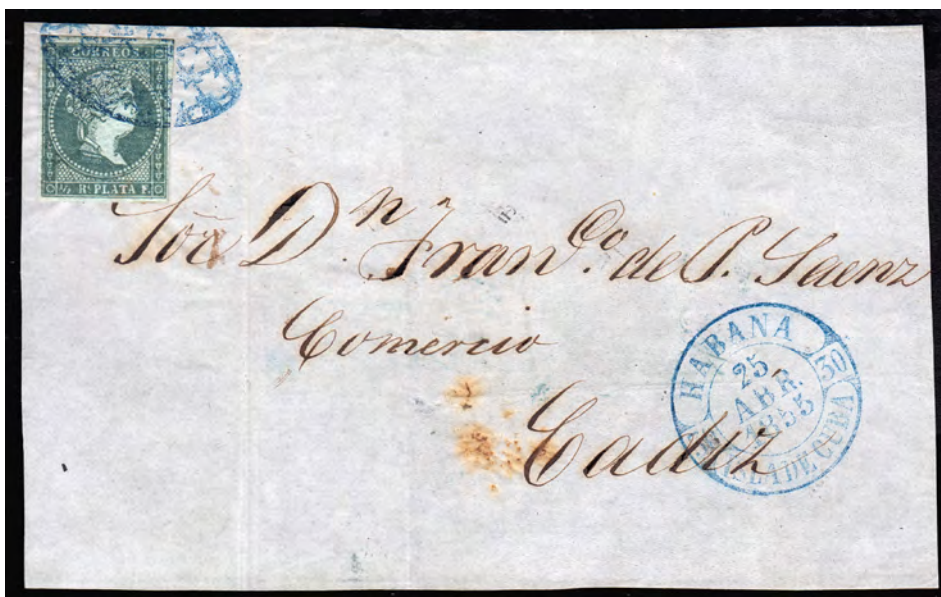 CORREOS
½ Rl. PLATA F.
Sor. Dn. Franco. de P. Saenz
Comercio
Cadiz
HABANA
30
25
ABR.
1855
ISLA DE CUBA